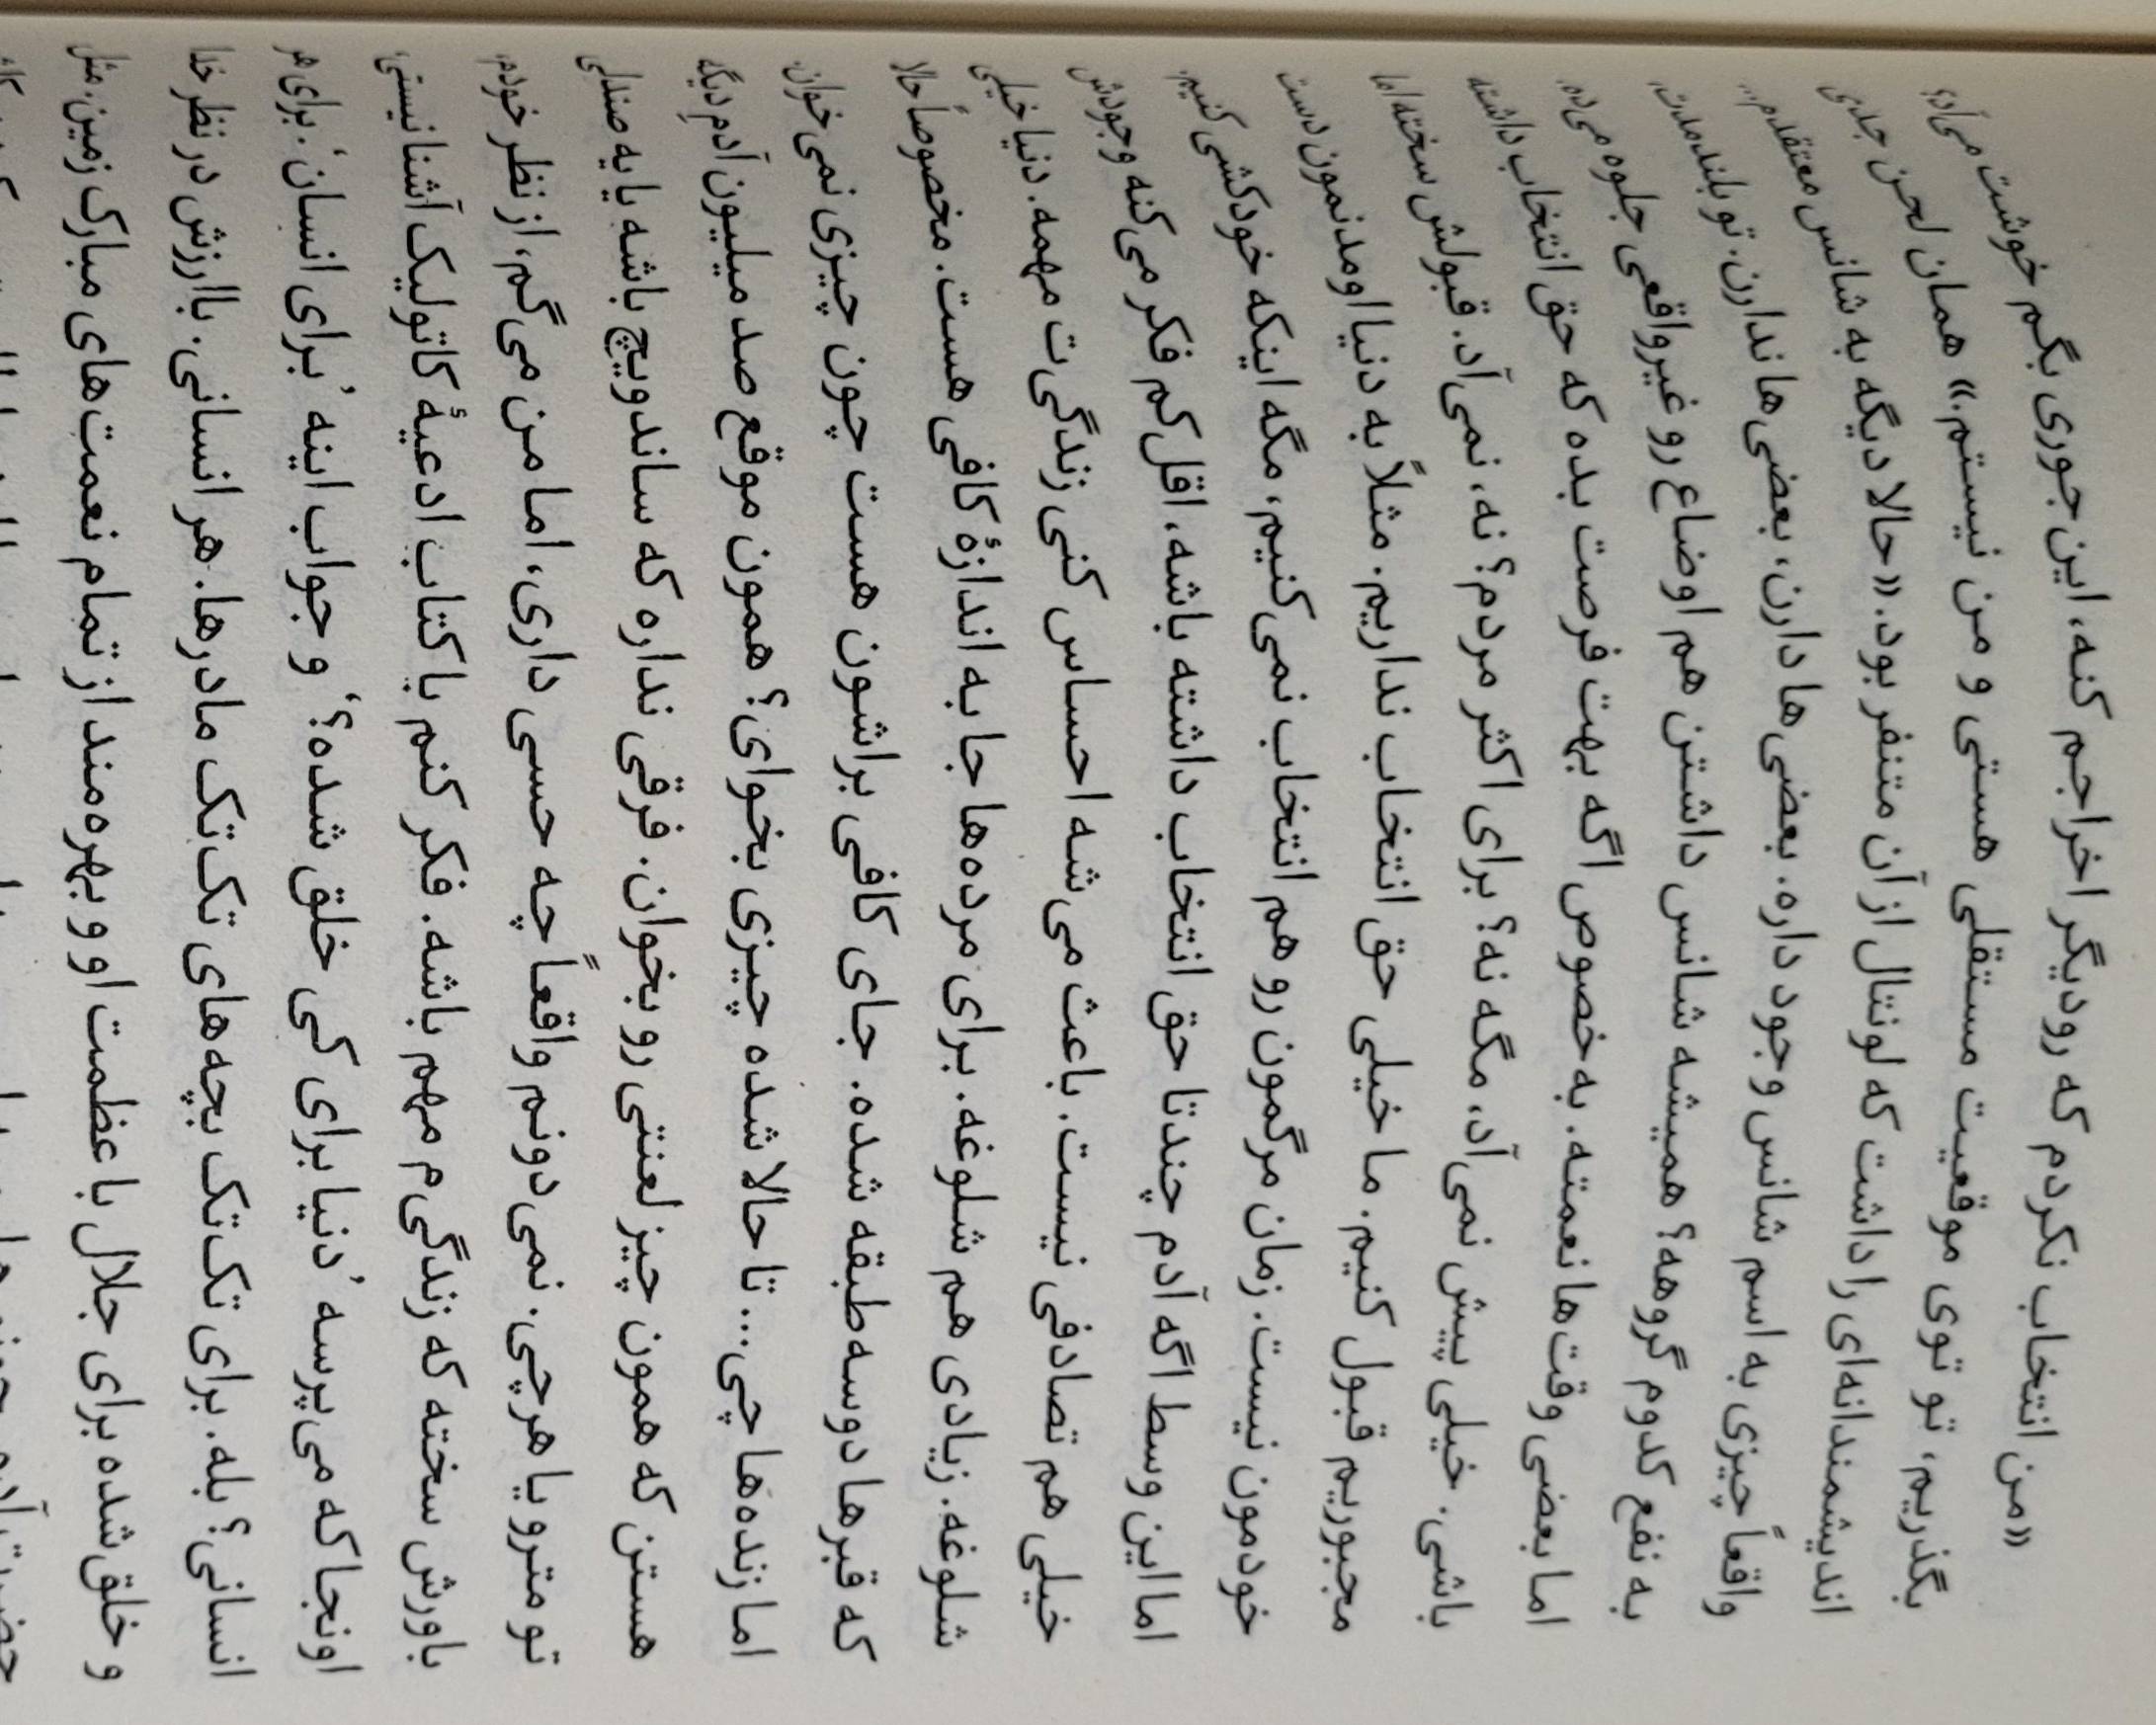 «من انتخاب نکردم که رودیگر اخراجم کنه، این جوری بگم خوشت می‌آد؟
بگذریم، تو توی موقعیت مستقلی هستی و من نیستم.» همان لحن جدی
اندیشمندانه‌ای را داشت که لونتال از آن متنفر بود. «حالا دیگه به شانس معتقدم...
واقعاً چیزی به اسم شانس وجود داره. بعضی‌ها دارن، بعضی‌ها ندارن. تو بلندمدت،
به نفع کدوم گروهه؟ همیشه شانس داشتن هم اوضاع رو غیرواقعی جلوه می‌ده.
اما بعضی وقت‌ها نعمته. به‌خصوص اگه بهت فرصت بده که حق انتخاب داشته
باشی. خیلی پیش نمی‌آد، مگه نه؟ برای اکثر مردم؟ نه، نمی‌آد. قبولش سخته اما
مجبوریم قبول کنیم. ما خیلی حق انتخاب نداریم. مثلاً به دنیا اومدنمون دست
خودمون نیست. زمان مرگمون رو هم انتخاب نمی‌کنیم، مگه اینکه خودکشی کنیم.
اما این وسط اگه آدم چندتا حق انتخاب داشته باشه، اقل‌کم فکر می‌کنه وجودش
خیلی هم تصادفی نیست. باعث می‌شه احساس کنی زندگی‌ت مهمه. دنیا خیلی
شلوغه. زیادی هم شلوغه. برای مرده‌ها جا به اندازهٔ کافی هست. مخصوصاً حالا
که قبرها دوسه‌طبقه شده. جای کافی براشون هست چون چیزی نمی‌خوان.
اما زنده‌ها چی... تا حالا شده چیزی بخوای؟ همون موقع صد میلیون آدم دیگه
هستن که همون چیز لعنتی رو بخوان. فرقی نداره که ساندویچ باشه یا یه صندلی
تو مترو یا هرچی. نمی‌دونم واقعاً چه حسی داری، اما من می‌گم، از نظر خودم،
باورش سخته که زندگی‌م مهم باشه. فکر کنم با کتاب ادعیهٔ کاتولیک آشنا نیستی؛
اونجا که می‌پرسه ’دنیا برای کی خلق شده؟‘ و جواب اینه ’برای انسان‘. برای هر
انسانی؟ بله. برای تک‌تک بچه‌های تک‌تک مادرها. هر انسانی. باارزش در نظر خدا
و خلق‌شده برای جلال باعظمت او و بهره‌مند از تمام نعمت‌های مبارک زمین. مثل